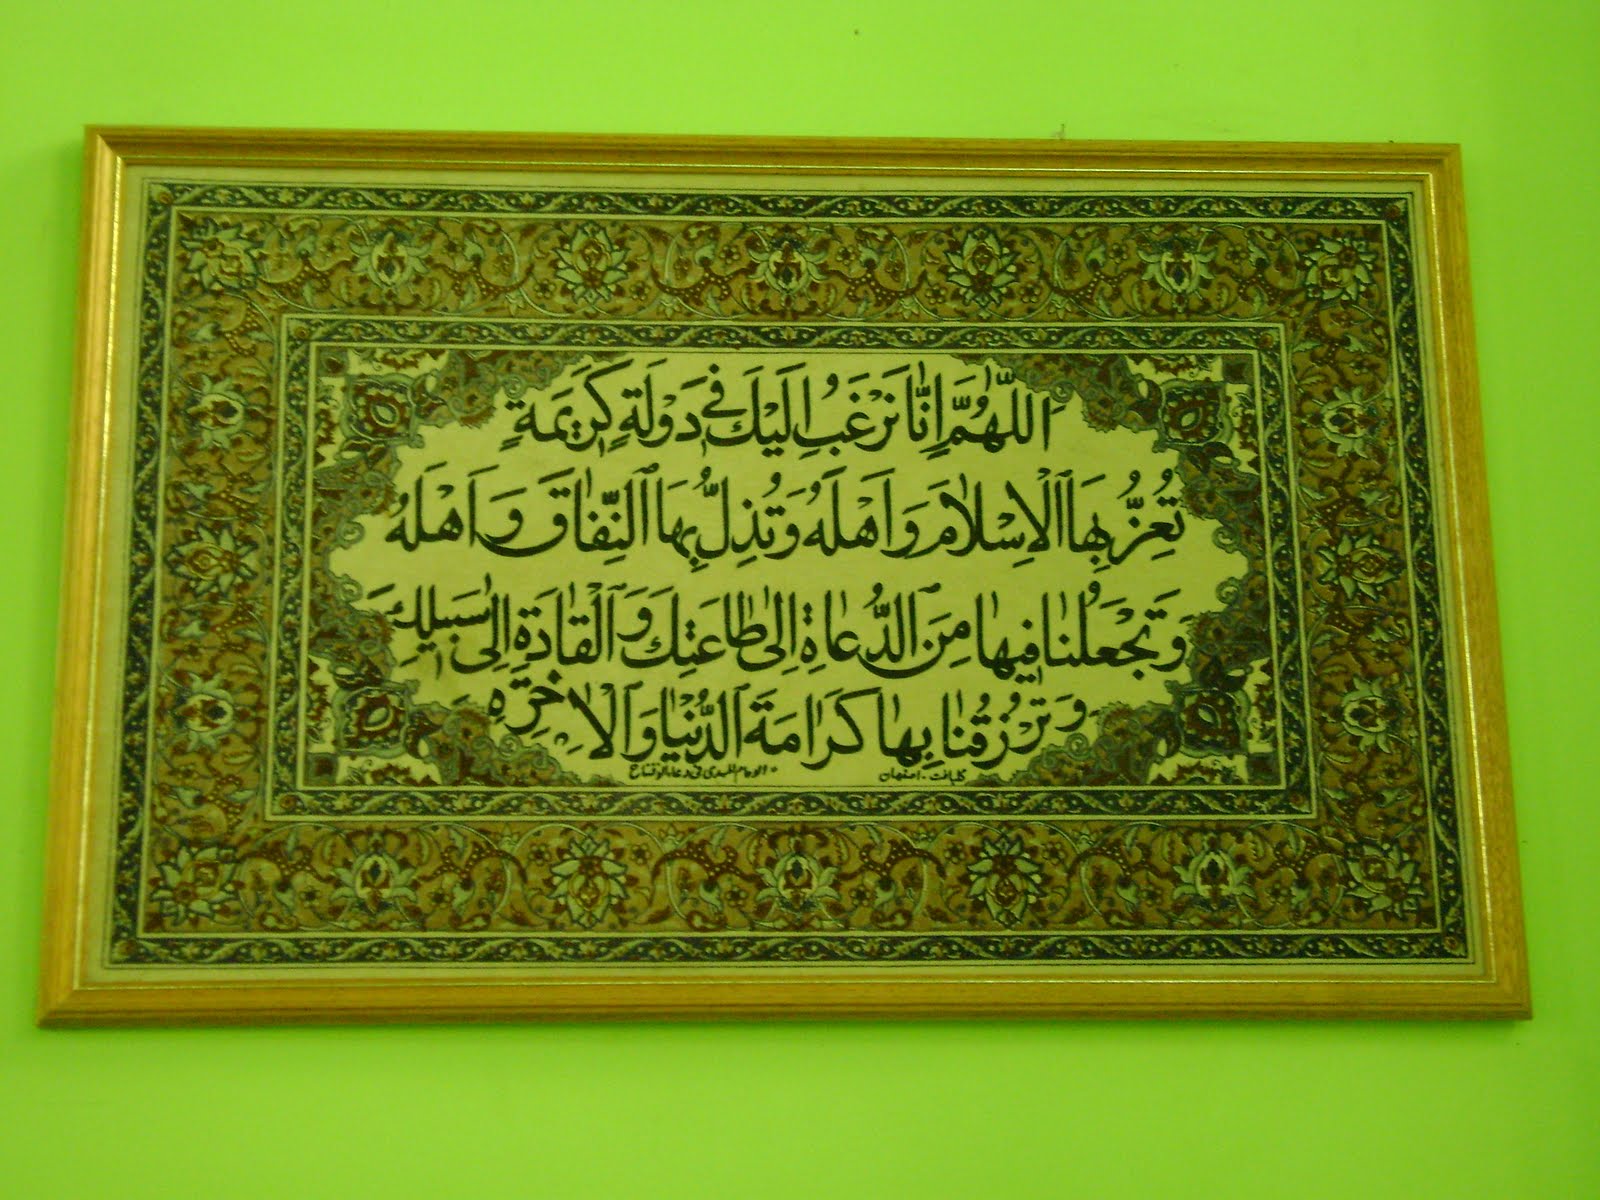 اَللّٰهُمَّ اِنّٰا نَرْغَبُ اِلَيْكَ فِي دَوْلَةٍ كَرِيمَةٍ
تُعِزُّ بِهَا اَلْاِسْلاٰمَ وَ اَهْلَهُ وَ تُذِلُّ بِهَا اَلنِّفٰاقَ وَ اَهْلَهُ
وَ تَجْعَلُنٰا فيهٰا مِنَ اَلدُّعٰاةِ اِلىٰ طٰاعَتِكَ وَ اَلْقٰادَةِ اِلىٰ سَبيلِكَ
وَ تَرْزُقُنٰا بِهٰا كَرٰامَةَ اَلدُّنْيٰا وَ اَلْاٰخِرَةِ
گلبافت - اصفهان
الامام المهدی فی دعاء الافتتاح